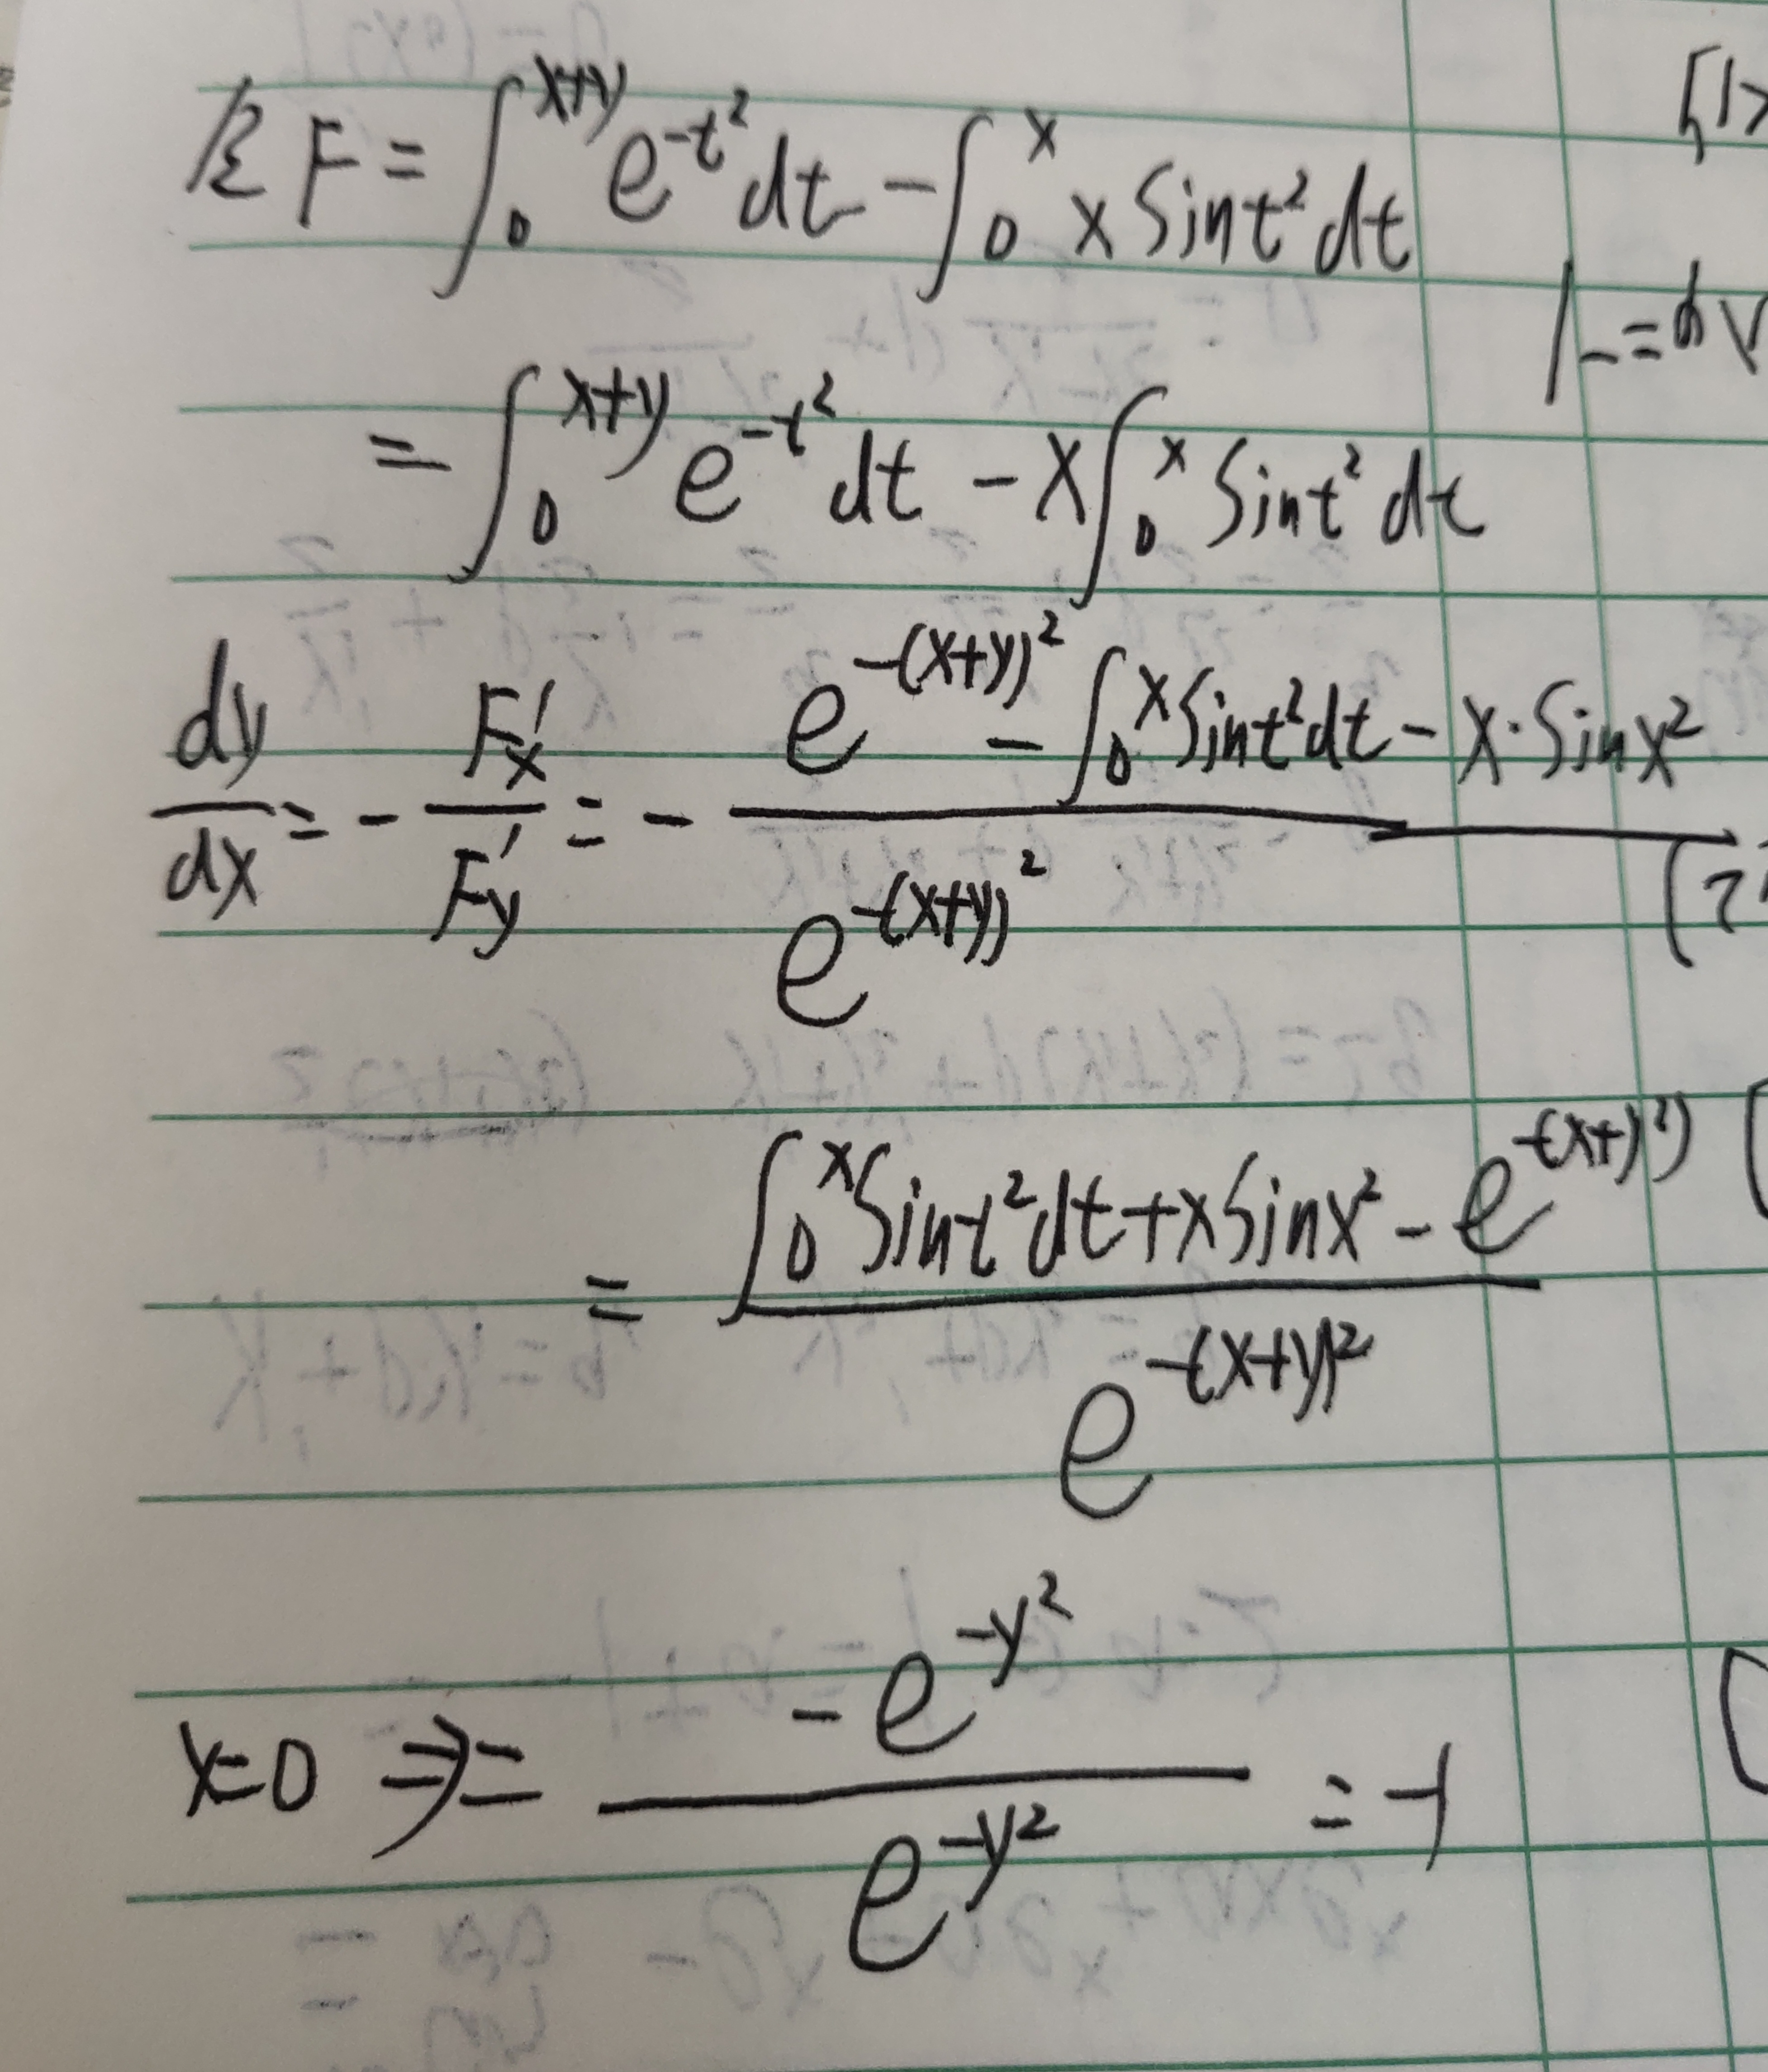 设 F = ∫₀^(x+y) e^(-t²) dt - ∫₀^x x sint² dt
= ∫₀^(x+y) e^(-t²) dt - x ∫₀^x sint² dt
dy/dx = - F'x/F'y = - (e^(-(x+y)²) - ∫₀^x sint² dt - x·sinx²)/(e^(-(x+y)²))
= (∫₀^x sint² dt + x sinx² - e^(-(x+y)²))/(e^(-(x+y)²))
x=0 ⇒ = (-e^(-y²))/(e^(-y²)) = -1